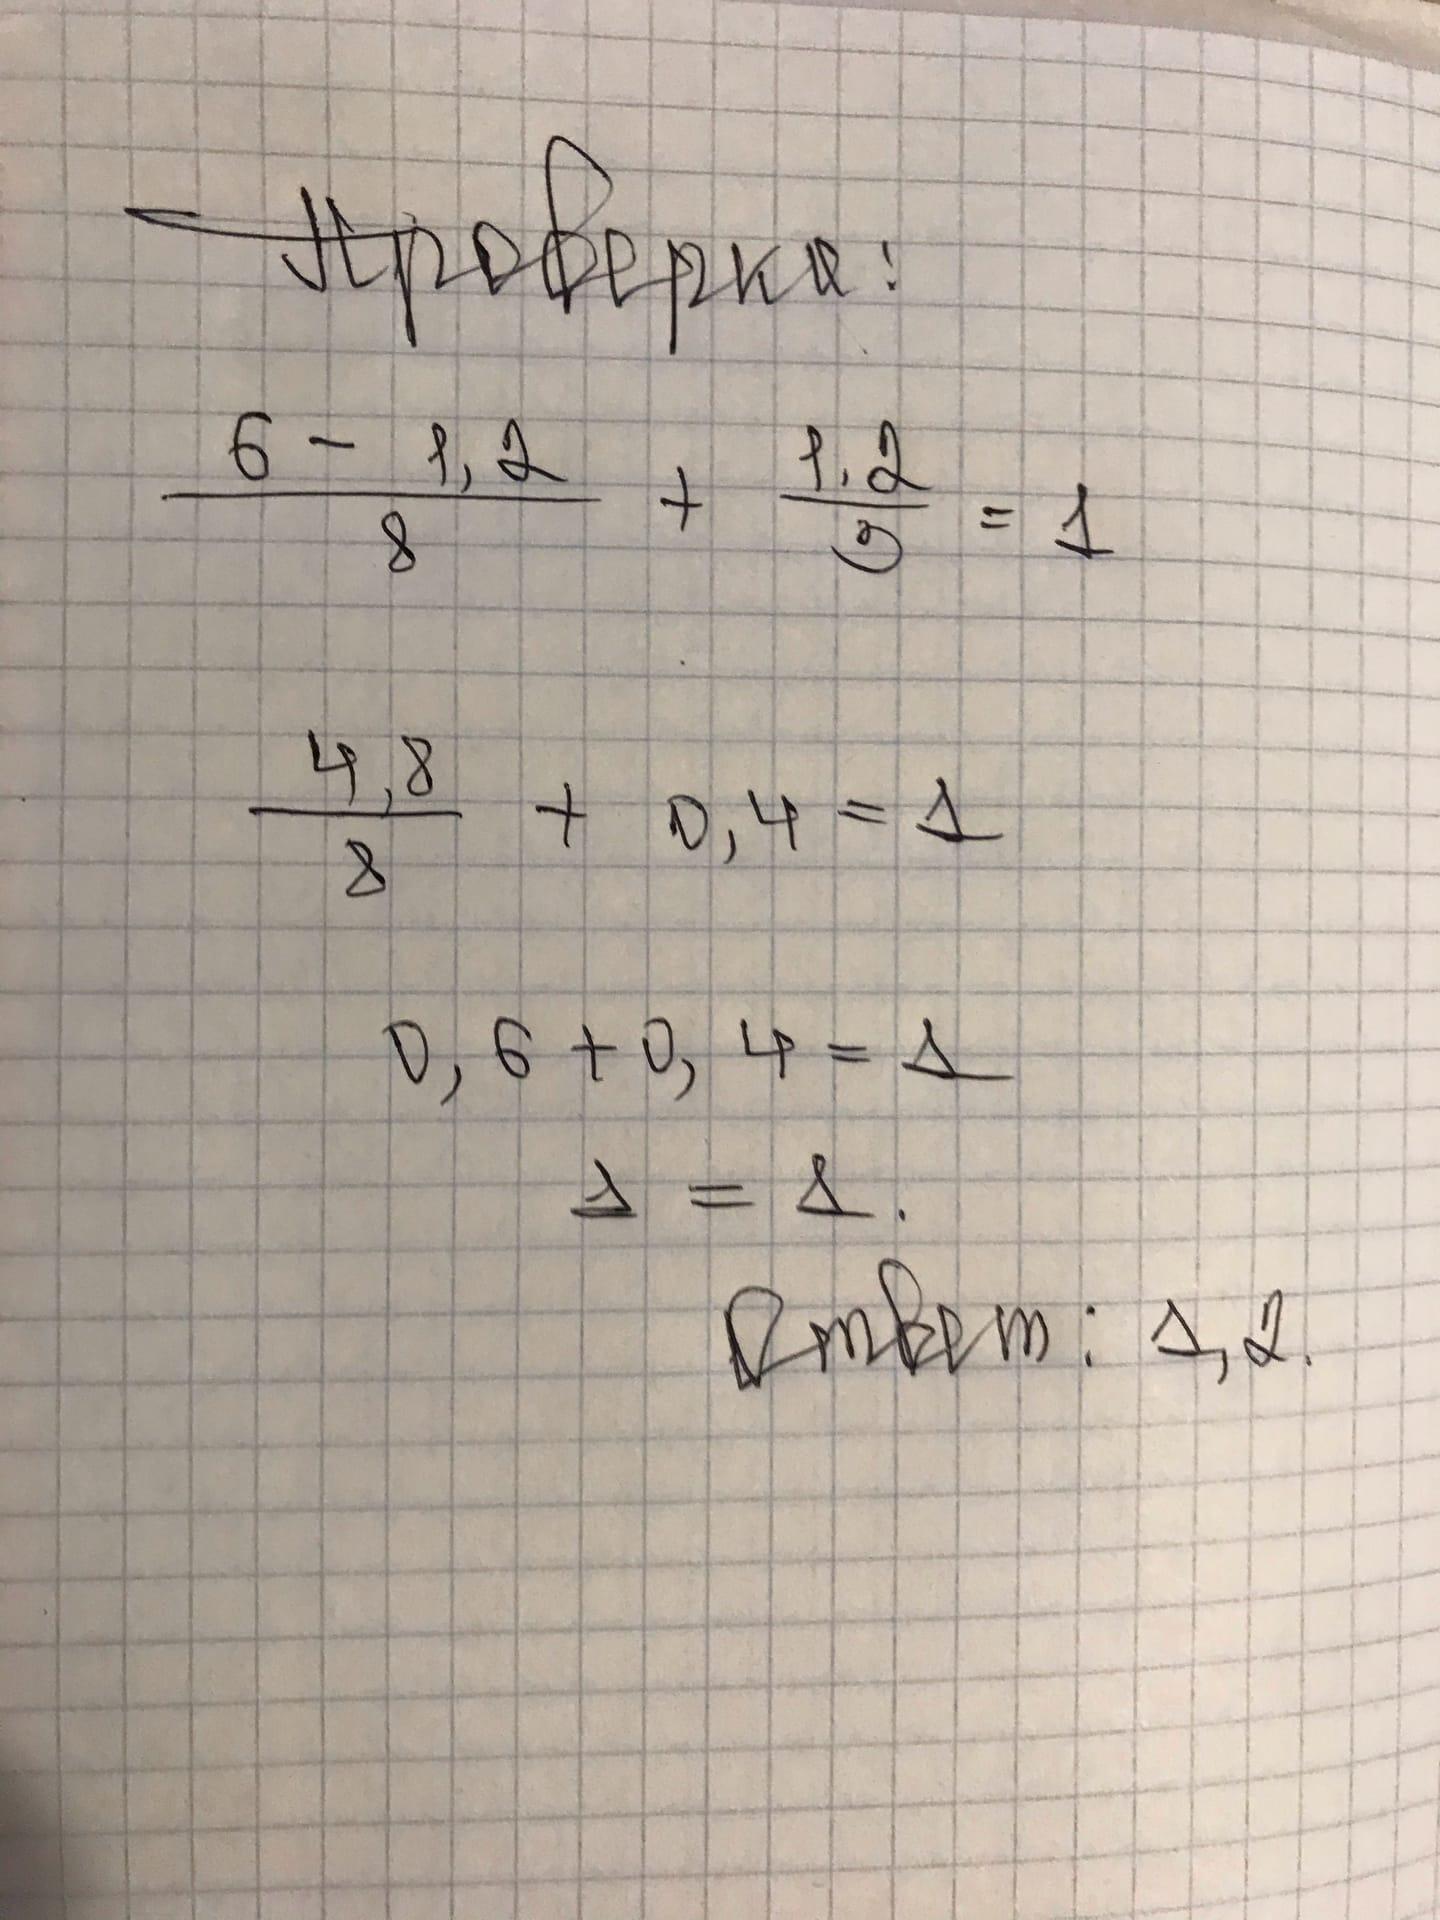 Проверка:
6 - 1,2 / 8 + 1,2 / 3 = 1
4,8 / 8 + 0,4 = 1
0,6 + 0,4 = 1
1 = 1.
Ответ: 1,2.